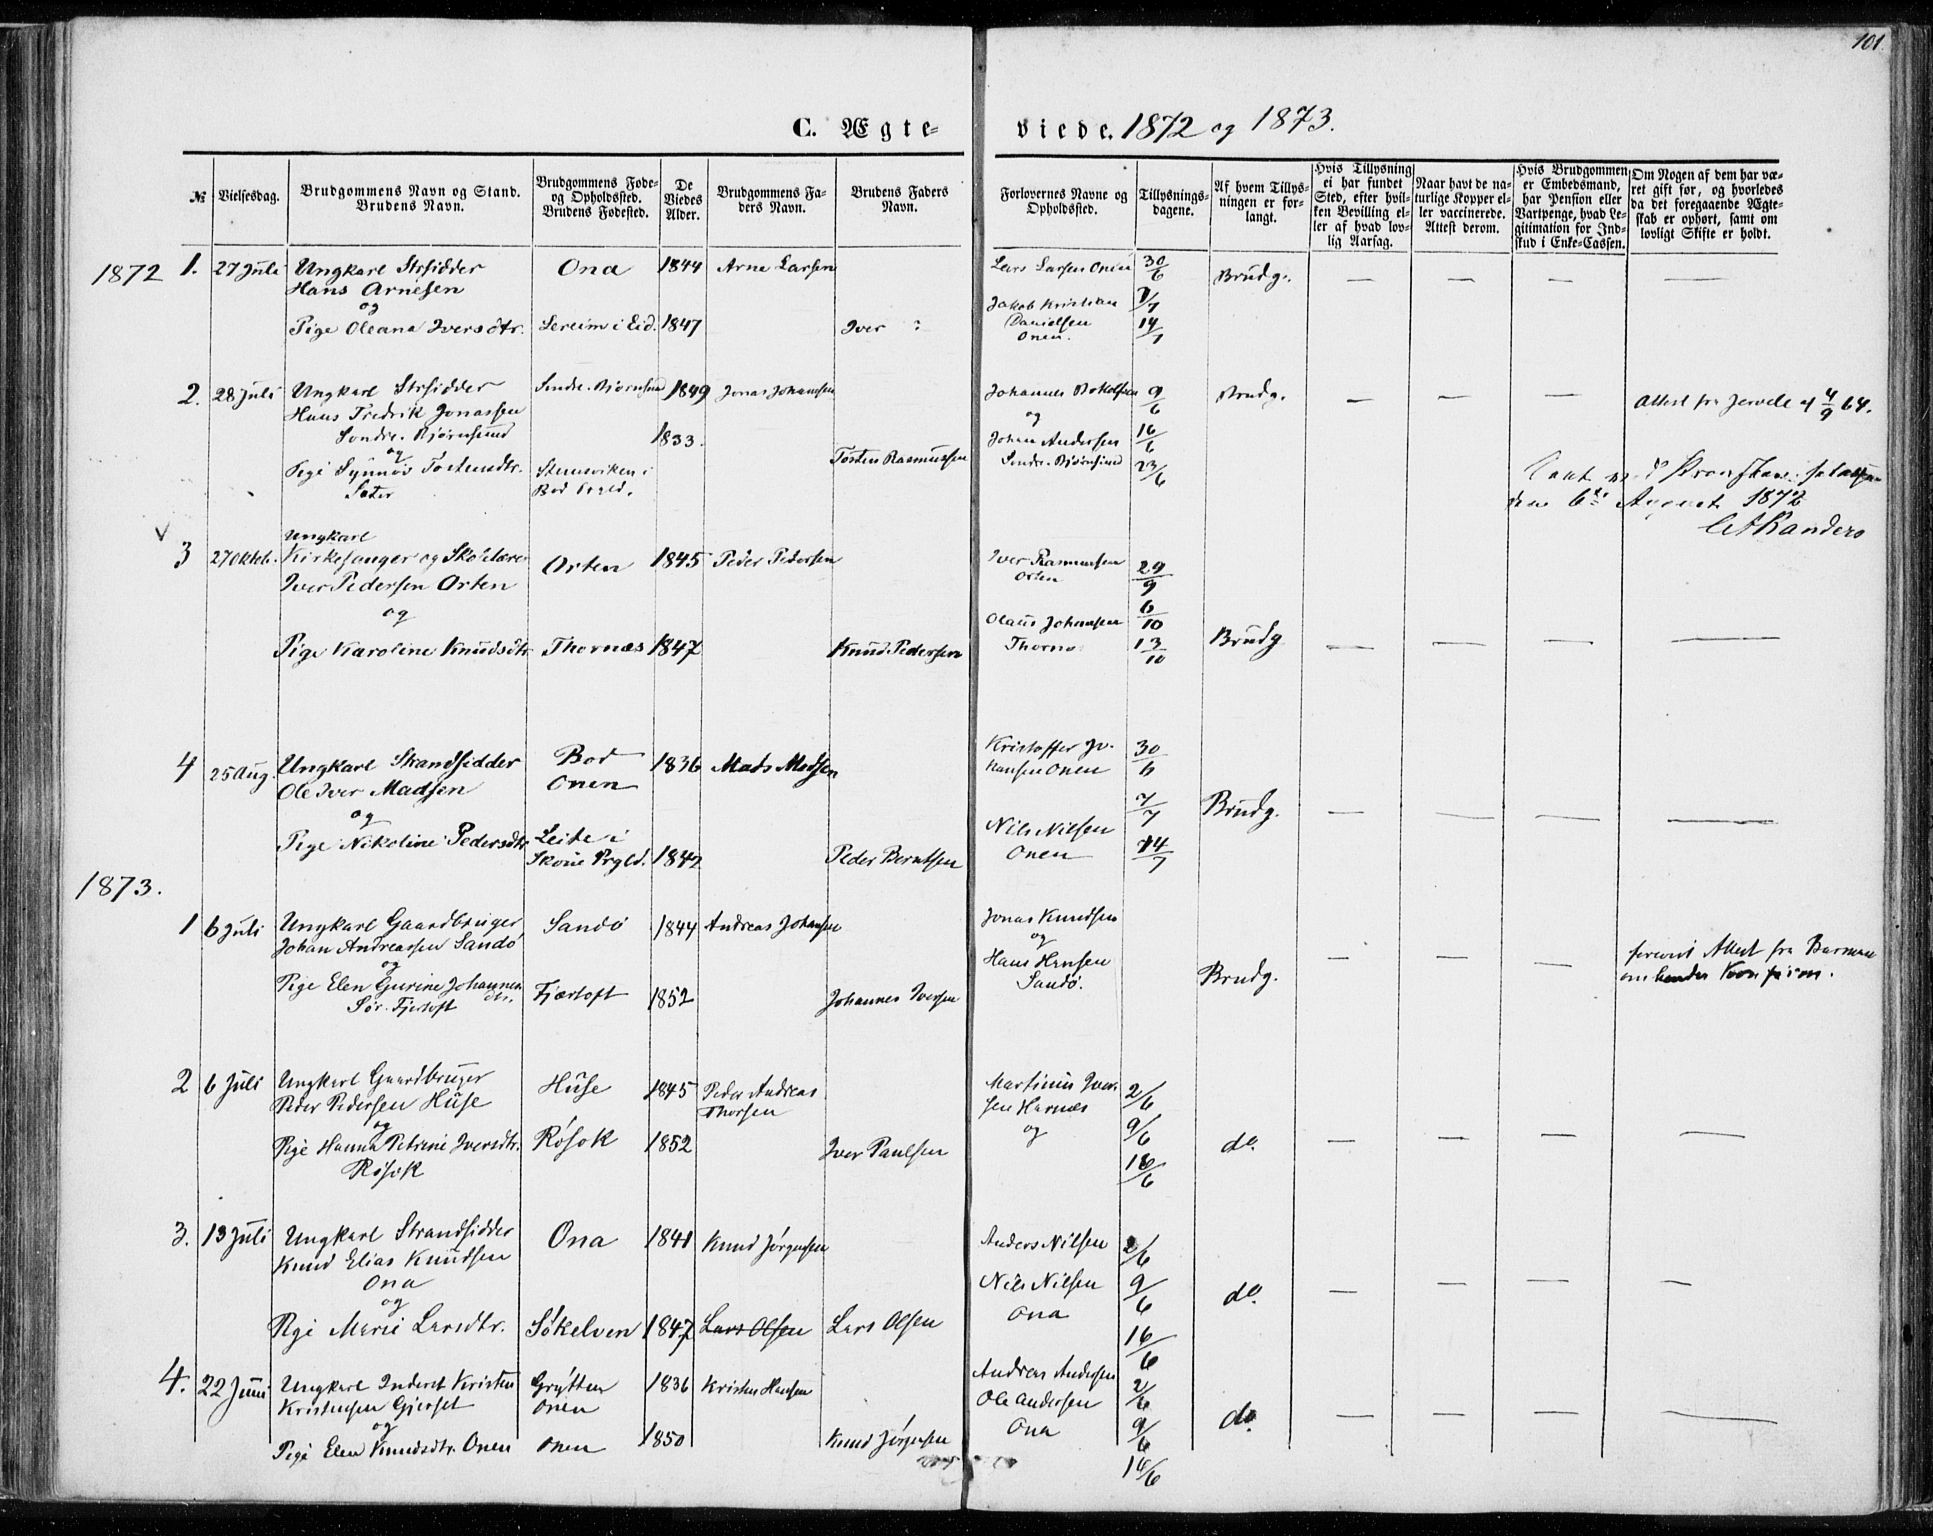 101
C. Ægte-
viede. 1872 og 1873.
№
Vielsesdag.
Brudgommens Navn og Stand.
Brudens Navn.
Brudgommens Føde-
og Opholdssted.
Brudens Fødested.
De
Viedes
Alder.
Brudgommens Fa-
ders Navn.
Brudens Faders
Navn.
Forlovernes Navne og
Opholdssted.
Tillysnings-
dagene.
Af hvem Tillys-
ningen er for-
langt.
Hvis Tillysning
ei har fundet
Sted, efter hvil-
ken Bevilling el-
ler af hvad lov-
lig Aarsag.
Naar havt de na-
turlige Kopper el-
ler vaccinerede.
Attest derom.
Hvis Brudgommen
er Embedsmand,
har Pension eller
Vartpenge, hvad Le-
gitimation for Ind-
skud i Enke-Cassen.
Om Nogen af dem har væ-
ret gift før, og hvorledes
da det foregaaende Ægte-
skab er ophørt, samt om
lovligt Skifte er holdt.
1872
1. 27 Juli Ungkarl Strsidder Ona 1844 Arne Larsen Lars Larsen Onen 30/6 Brudg. — — — —
Hans Arnesen
og Jakob Kristian 7/7
Pige Oleana Iversdtr. Sereim i Eid. 1847 Iver : Danielsen 14/7
Onen.
2. 28 Juli Ungkarl Strsidder Søndre-Bjørnsund 1849 Jonas Johansen Johannes Botolfsen 9/6 Brudg. — — — Attest fra Jervele af 4/9 64.
Hans Fredrik Jonassen og
Søndre-Bjørnsund 1833. Johan Andersen 16/6
og Søndre-Bjørnsund 23/6
Pige Synnøv Tostensdtr. Stennviken i Tosten Rasmussen
Sæter Bod Prgld.
den 6te August 1872
Randers
V
3 27 Oktob. Ungkarl
Kirkesanger og Skolelærer Orten 1845 Peder Pedersen Iver Rasmussen 29/9
Iver Pedersen Orten Orten
og Olaus Johansen 6/10
Pige Karoline Knudsdtr. Thornæs 1847 Knud Pedersen Thornæs 13/10 Brudg — — — —
4 25 Aug. Ungkarl Strandsidder Bod 1836 Mads Madsen Kristoffer Jo- 30/6
Ole Iver Madsen Onen hansen Onen
og 7/7 Brudg. — — — —
Pige Nikoline Pedersdtr. Leite i Nils Nilsen
Skoue Prgld. 1842 Peder Berntsen Onen 14/7
1873.
1 6 Juli Ungkarl Gaardbruger Sandø 1844 Andreas Johansen Jonas Knudsen
Johan Andreassen Sandø og
og Hans Hansen Brudg. — — — forevist Attest fra Barmen
Pige Elen Gurine Johannes Fjærtoft 1852 Johannes Iversen Sandø. om hendes Konfirm.
dtr.
Sør. Fjertoft
2 6 Juli Ungkarl Gaardbruger Huse 1845 Peder Andreas Martinus Iver- 2/6
Peder Pedersen Huse Thorsen sen Harnæs
og og 9/6
Pige Hanna Petrine Iversdtr. Røsok 1852 Iver Paulsen do. — — — —
Røsok 16/6
3. 13 Juli Ungkarl Strandsidder Ona 1841 Knud Jørgensen Anders Nilsen 2/6
Knud Elias Knudsen
Ona Nils Nilsen 9/6 do. — — — —
og Ona
Pige Marie Larsdtr. Søkelven 1847 Lars Olsen Lars Olsen 16/6
4. 22 Juni Ungkarl Inderst Kristen Grytten 1836 Kristen Hansen Andreas Andersen 2/6
Kristensen Gjerset Onen Ole Andersen
og Ona 9/6 do — — — —
Pige Elen Knudsdtr. Onen Onen 1850 Knud Jørgensen 14/6